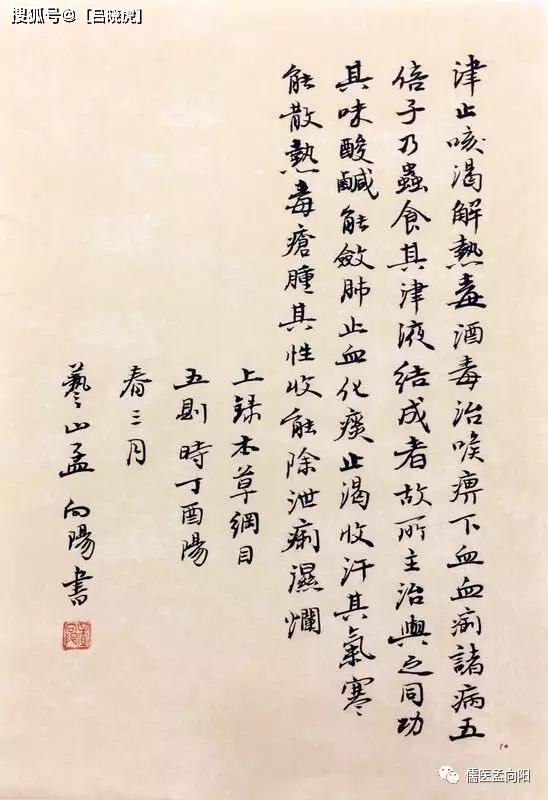 搜狐号@【吕晓虎】
津止咳渴解熱毒酒毒治喉痹下血血痢諸病五
倍子乃蟲食其津液結成者故所主治與之同功
其味酸鹹能斂肺止血化痰止渴收汗其氣寒
能散熱毒瘡腫其性收能除泄痢濕爛
上錄本草綱目
五則時丁酉陽
春三月
藝山孟向陽書
10
儒医孟向阳